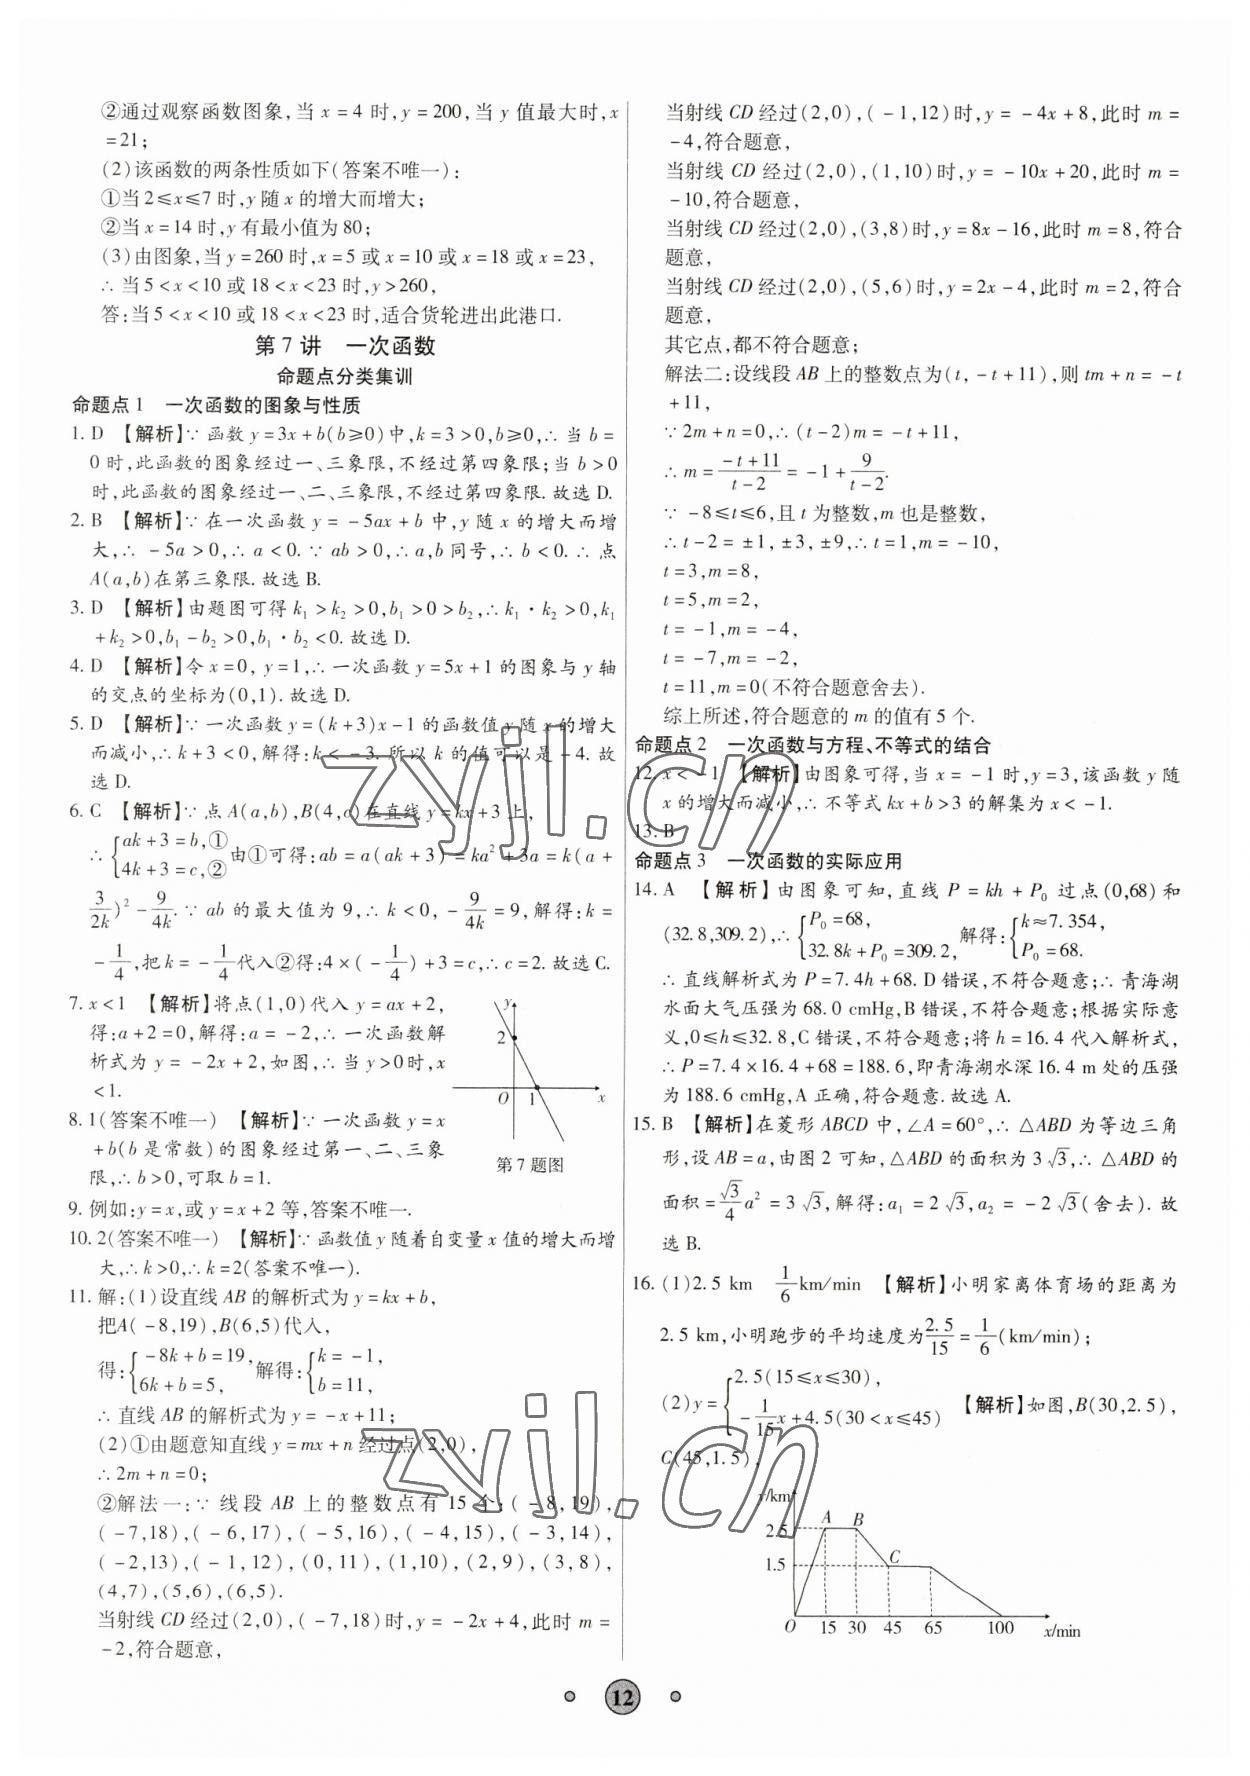 ②通过观察函数图象,当 x=4 时,y=200,当 y 值最大时,x
=21;
(2)该函数的两条性质如下(答案不唯一):
①当 2≤x≤7 时,y 随 x 的增大而增大;
②当 x=14 时,y 有最小值为 80;
(3)由图象,当 y=260 时,x=5 或 x=10 或 x=18 或 x=23,
∴当 5<x<10 或 18<x<23 时,y>260,
答:当 5<x<10 或 18<x<23 时,适合货轮进出此港口.
第 7 讲 一次函数
命题点分类集训
命题点 1 一次函数的图象与性质
1. D 【解析】∵函数 y=3x+b(b≥0)中,k=3>0,b≥0,∴当 b=
0 时,此函数的图象经过一、三象限,不经过第四象限;当 b>0
时,此函数的图象经过一、二、三象限,不经过第四象限.故选 D.
2. B 【解析】∵在一次函数 y=-5ax+b 中,y 随 x 的增大而增
大,∴-5a>0,∴a<0.∵ab>0,∴a,b 同号,∴b<0.∴点
A(a,b)在第三象限.故选 B.
3. D 【解析】由题图可得 k₁>k₂>0,b₁>0>b₂,∴k₁·k₂>0,k₁
+k₂>0,b₁-b₂>0,b₁·b₂<0.故选 D.
4. D 【解析】令 x=0, y=1,∴一次函数 y=5x+1 的图象与 y 轴
的交点的坐标为(0,1).故选 D.
5. D 【解析】∵一次函数 y=(k+3)x-1 的函数值 y 随 x 的增大
而减小,∴k+3<0,解得:k<-3.所以 k 的值可以是-4.故
选 D.
6. C 【解析】∵点 A(a,b),B(4,c)在直线 y=kx+3 上,
∴{ak+3=b,① 4k+3=c,② 由①可得:ab=a(ak+3)=ka²+3a=k(a+
3/2k)²-9/4k.∵ab 的最大值为 9,∴k<0,-9/4k=9,解得:k=
-1/4,把 k=-1/4代入②得:4×(-1/4)+3=c,∴c=2.故选 C.
7. x<1 【解析】将点(1,0)代入 y=ax+2,
得:a+2=0,解得:a=-2,∴一次函数解
析式为 y=-2x+2,如图,∴当 y>0时,x
<1.
y
2
O 1 x
第 7 题图
8. 1(答案不唯一) 【解析】∵一次函数 y=x
+b(b 是常数)的图象经过第一、二、三象
限,∴b>0,可取 b=1.
9. 例如:y=x,或 y=x+2 等,答案不唯一.
10. 2(答案不唯一) 【解析】∵函数值 y 随着自变量 x 值的增大而增
大,∴k>0,∴k=2(答案不唯一).
11. 解:(1)设直线 AB 的解析式为 y=kx+b,
把A(-8,19),B(6,5)代入,
得:{-8k+b=19, 6k+b=5, 解得:{k=-1, b=11,
∴直线 AB 的解析式为 y=-x+11;
(2)①由题意知直线 y=mx+n 经过点(2,0),
∴2m+n=0;
②解法一:∵线段 AB 上的整数点有 15 个:(-8,19),
(-7,18),(-6,17),(-5,16),(-4,15),(-3,14),
(-2,13),(-1,12),(0,11),(1,10),(2,9),(3,8),
(4,7),(5,6),(6,5).
当射线 CD 经过(2,0),(-7,18)时,y=-2x+4,此时 m=
-2,符合题意,
当射线 CD 经过(2,0),(-1,12)时,y=-4x+8,此时 m=
-4,符合题意,
当射线 CD 经过(2,0),(1,10)时,y=-10x+20,此时 m=
-10,符合题意,
当射线 CD 经过(2,0),(3,8)时,y=8x-16,此时 m=8,符合
题意,
当射线 CD 经过(2,0),(5,6)时,y=2x-4,此时 m=2,符合
题意,
其它点,都不符合题意;
解法二:设线段 AB 上的整数点为(t,-t+11),则 tm+n=-t
+11,
∵2m+n=0,∴(t-2)m=-t+11,
∴m=(-t+11)/(t-2)=-1+9/(t-2).
∵-8≤t≤6,且 t 为整数,m 也是整数,
∴t-2=±1,±3,±9,∴t=1,m=-10,
t=3,m=8,
t=5,m=2,
t=-1,m=-4,
t=-7,m=-2,
t=11,m=0(不符合题意舍去).
综上所述,符合题意的 m 的值有 5 个.
命题点 2 一次函数与方程、不等式的结合
12. x<-1 【解析】由图象可得,当 x=-1 时,y=3,该函数 y 随
x 的增大而减小,∴不等式 kx+b>3 的解集为 x<-1.
13. B
命题点 3 一次函数的实际应用
14. A 【解析】由图象可知,直线 P=kh+P₀ 过点(0,68)和
(32.8,309.2),∴{P₀=68, 32.8k+P₀=309.2, 解得:{k≈7.354, P₀=68.
∴直线解析式为 P=7.4h+68.D 错误,不符合题意;∴青海湖
水面大气压强为 68.0 cmHg,B 错误,不符合题意;根据实际意
义,0≤h≤32.8,C 错误,不符合题意;将 h=16.4 代入解析式,
∴P=7.4×16.4+68=188.6,即青海湖水深 16.4 m 处的压强
为 188.6 cmHg,A 正确,符合题意.故选 A.
15. B 【解析】在菱形 ABCD 中,∠A=60°,∴△ABD 为等边三角
形,设 AB=a,由图 2 可知,△ABD 的面积为 3√3,∴△ABD 的
面积=√3/4a²=3√3,解得:a₁=2√3,a₂=-2√3(舍去).故
选 B.
16. (1)2.5 km 1/6km/min 【解析】小明家离体育场的距离为
2.5 km,小明跑步的平均速度为2.5/15=1/6(km/min);
(2)y={2.5(15≤x≤30), -1/15x+4.5(30<x≤45) 【解析】如图,B(30,2.5),
C(45,1.5),
y/km
A B
2.5
C
1.5
O 15 30 45 65 100 x/min
12
zyjl.cn
zyjl.cn